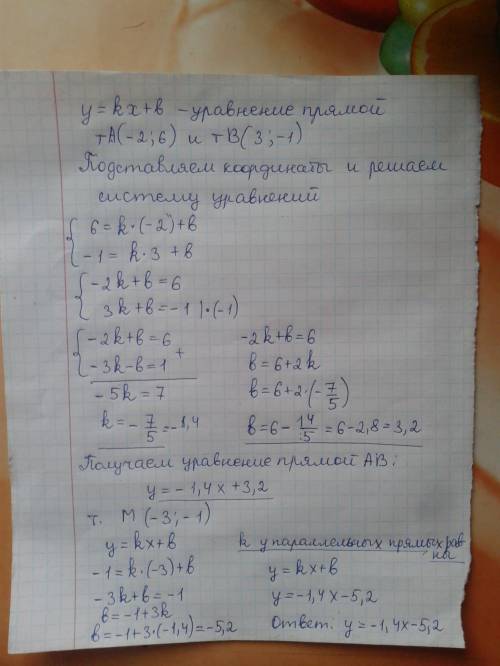 y = kx + b – уравнение прямой
т A(-2; 6) и т B(3; -1)
Подставляем координаты и решаем
систему уравнений
{ 6 = k·(-2) + b
-1 = k·3 + b
{ -2k + b = 6
3k + b = -1 |·(-1)
{ -2k + b = 6
-3k - b = 1 +
-5k = 7
k = -7/5 = -1,4
-2k + b = 6
b = 6 + 2k
b = 6 + 2·(-7/5)
b = 6 - 14/5 = 6 - 2,8 = 3,2
Получаем уравнение прямой AB:
y = -1,4x + 3,2
т. M(-3; -1)
y = kx + b
-1 = k·(-3) + b
-3k + b = -1
b = -1 + 3k
b = -1 + 3·(-1,4) = -5,2
k у параллельных прямых рав-
ны
y = kx + b
y = -1,4x - 5,2
Ответ: y = -1,4x - 5,2